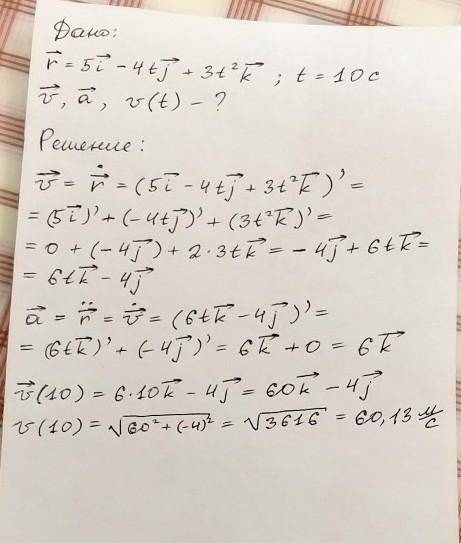 Дано:
r⃗ = 5i⃗ - 4tj⃗ + 3t²k⃗ ; t = 10c
v⃗, a⃗, v(t) - ?
Решение:
v⃗ = ṙ⃗ = (5i⃗ - 4tj⃗ + 3t²k⃗)' =
= (5i⃗)' + (-4tj⃗)' + (3t²k⃗)' =
= 0 + (-4j⃗) + 2·3tk⃗ = -4j⃗ + 6tk⃗ =
= 6tk⃗ - 4j⃗
a⃗ = r̈⃗ = v̇⃗ = (6tk⃗ - 4j⃗)' =
= (6tk⃗)' + (-4j⃗)' = 6k⃗ + 0 = 6k⃗
v⃗(10) = 6·10k⃗ - 4j⃗ = 60k⃗ - 4j⃗
v(10) = √(60² + (-4)²) = √3616 = 60,13 м/с